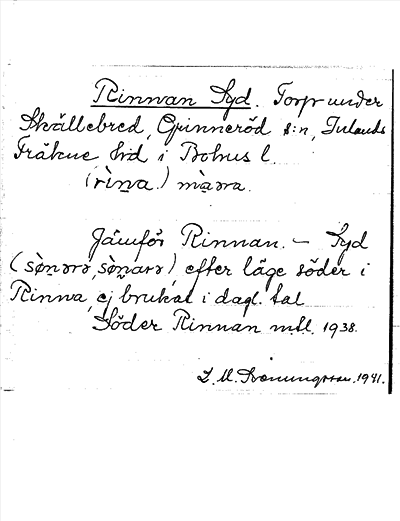 Rinnan Syd. Torp under
Skällebred, Grinneröd s:n, Inlands
Fräkne hd i Bohus l.
(rìn̲a.)
Jämför Rinnan. – Syd
(sø̀nərə, sø̀narə) efter läge söder i
Rinna, ej brukat i dagl. tal
Söder Rinnan mtl. 1938.
1941.